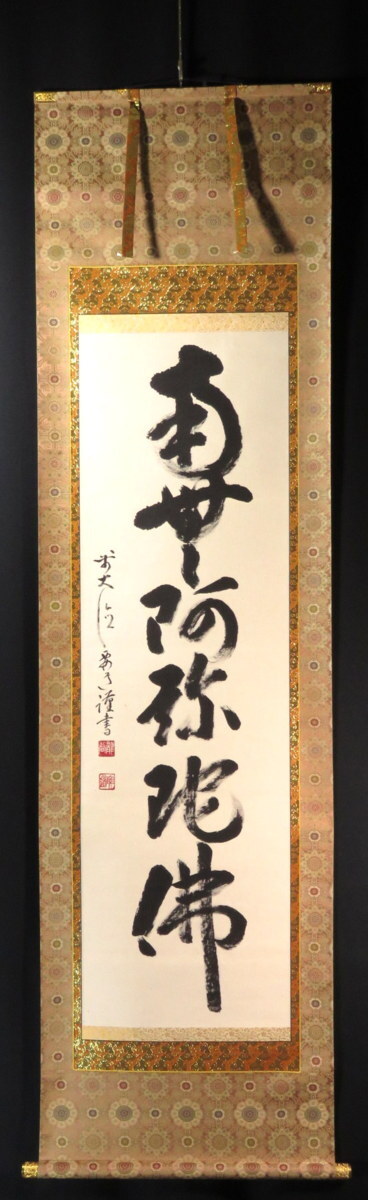 南無阿弥陀佛
前大德
謹書